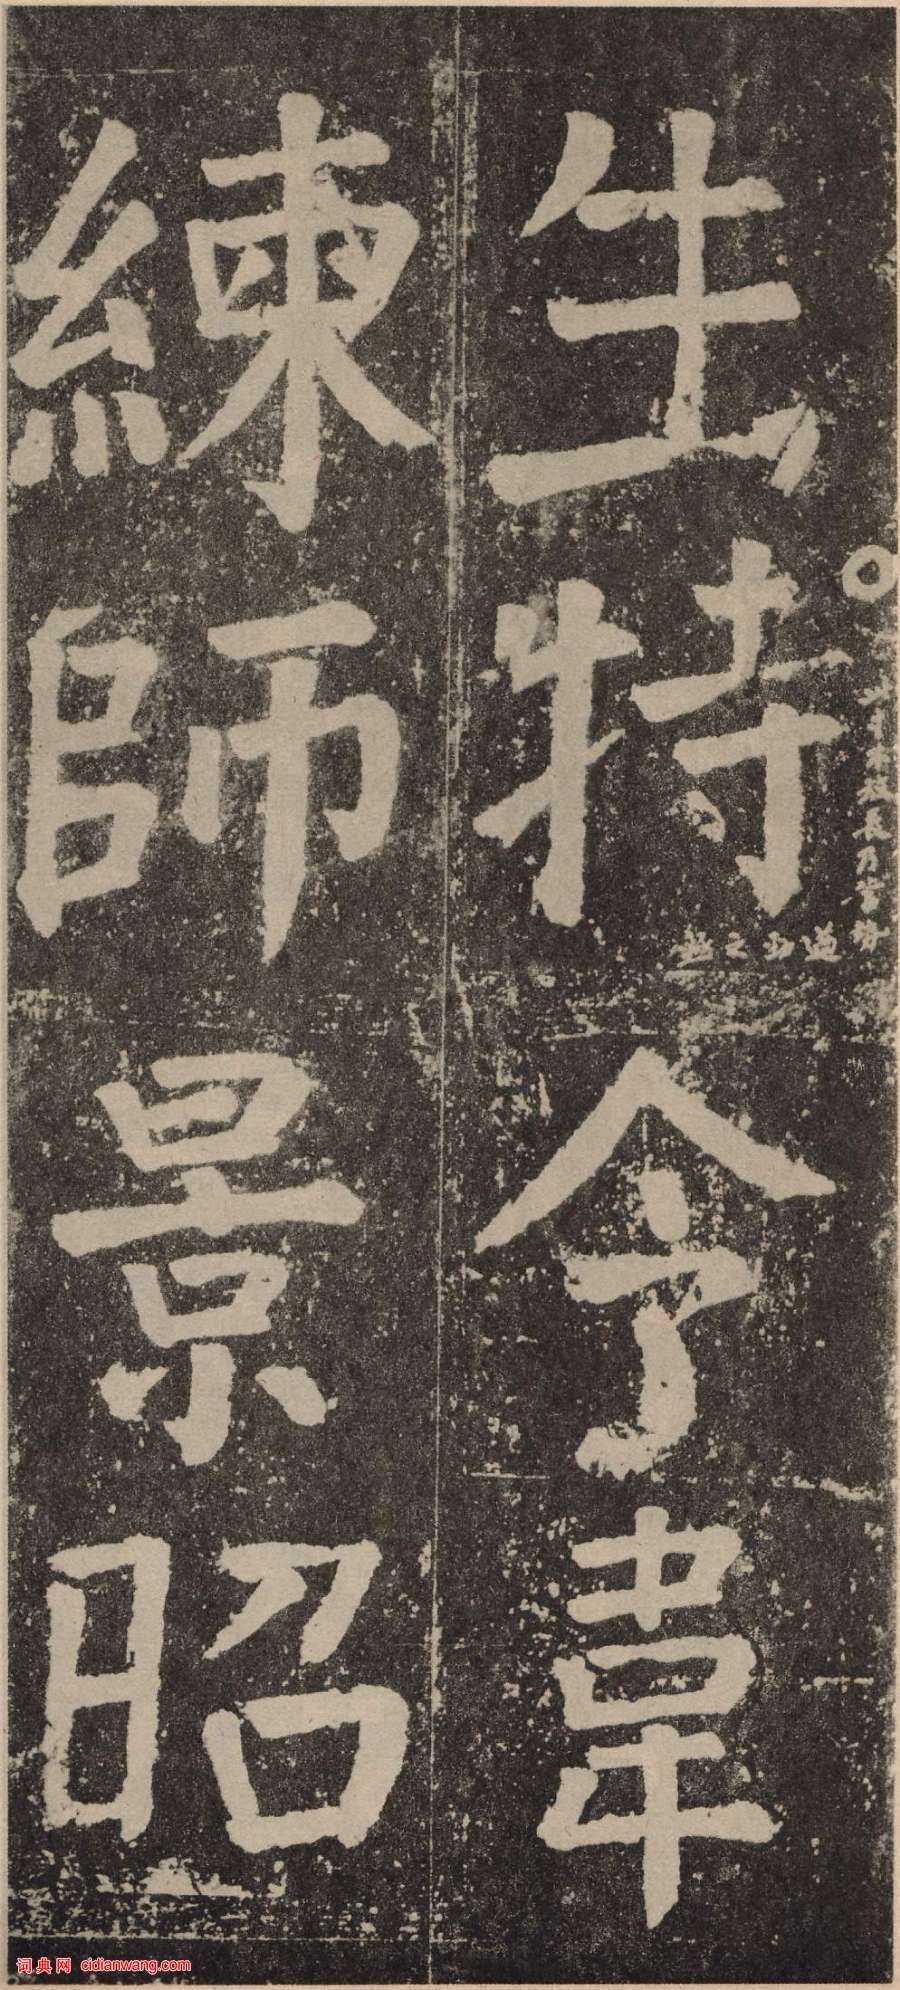 生特令韋
練師景昭
詞典网 cidianwang.com